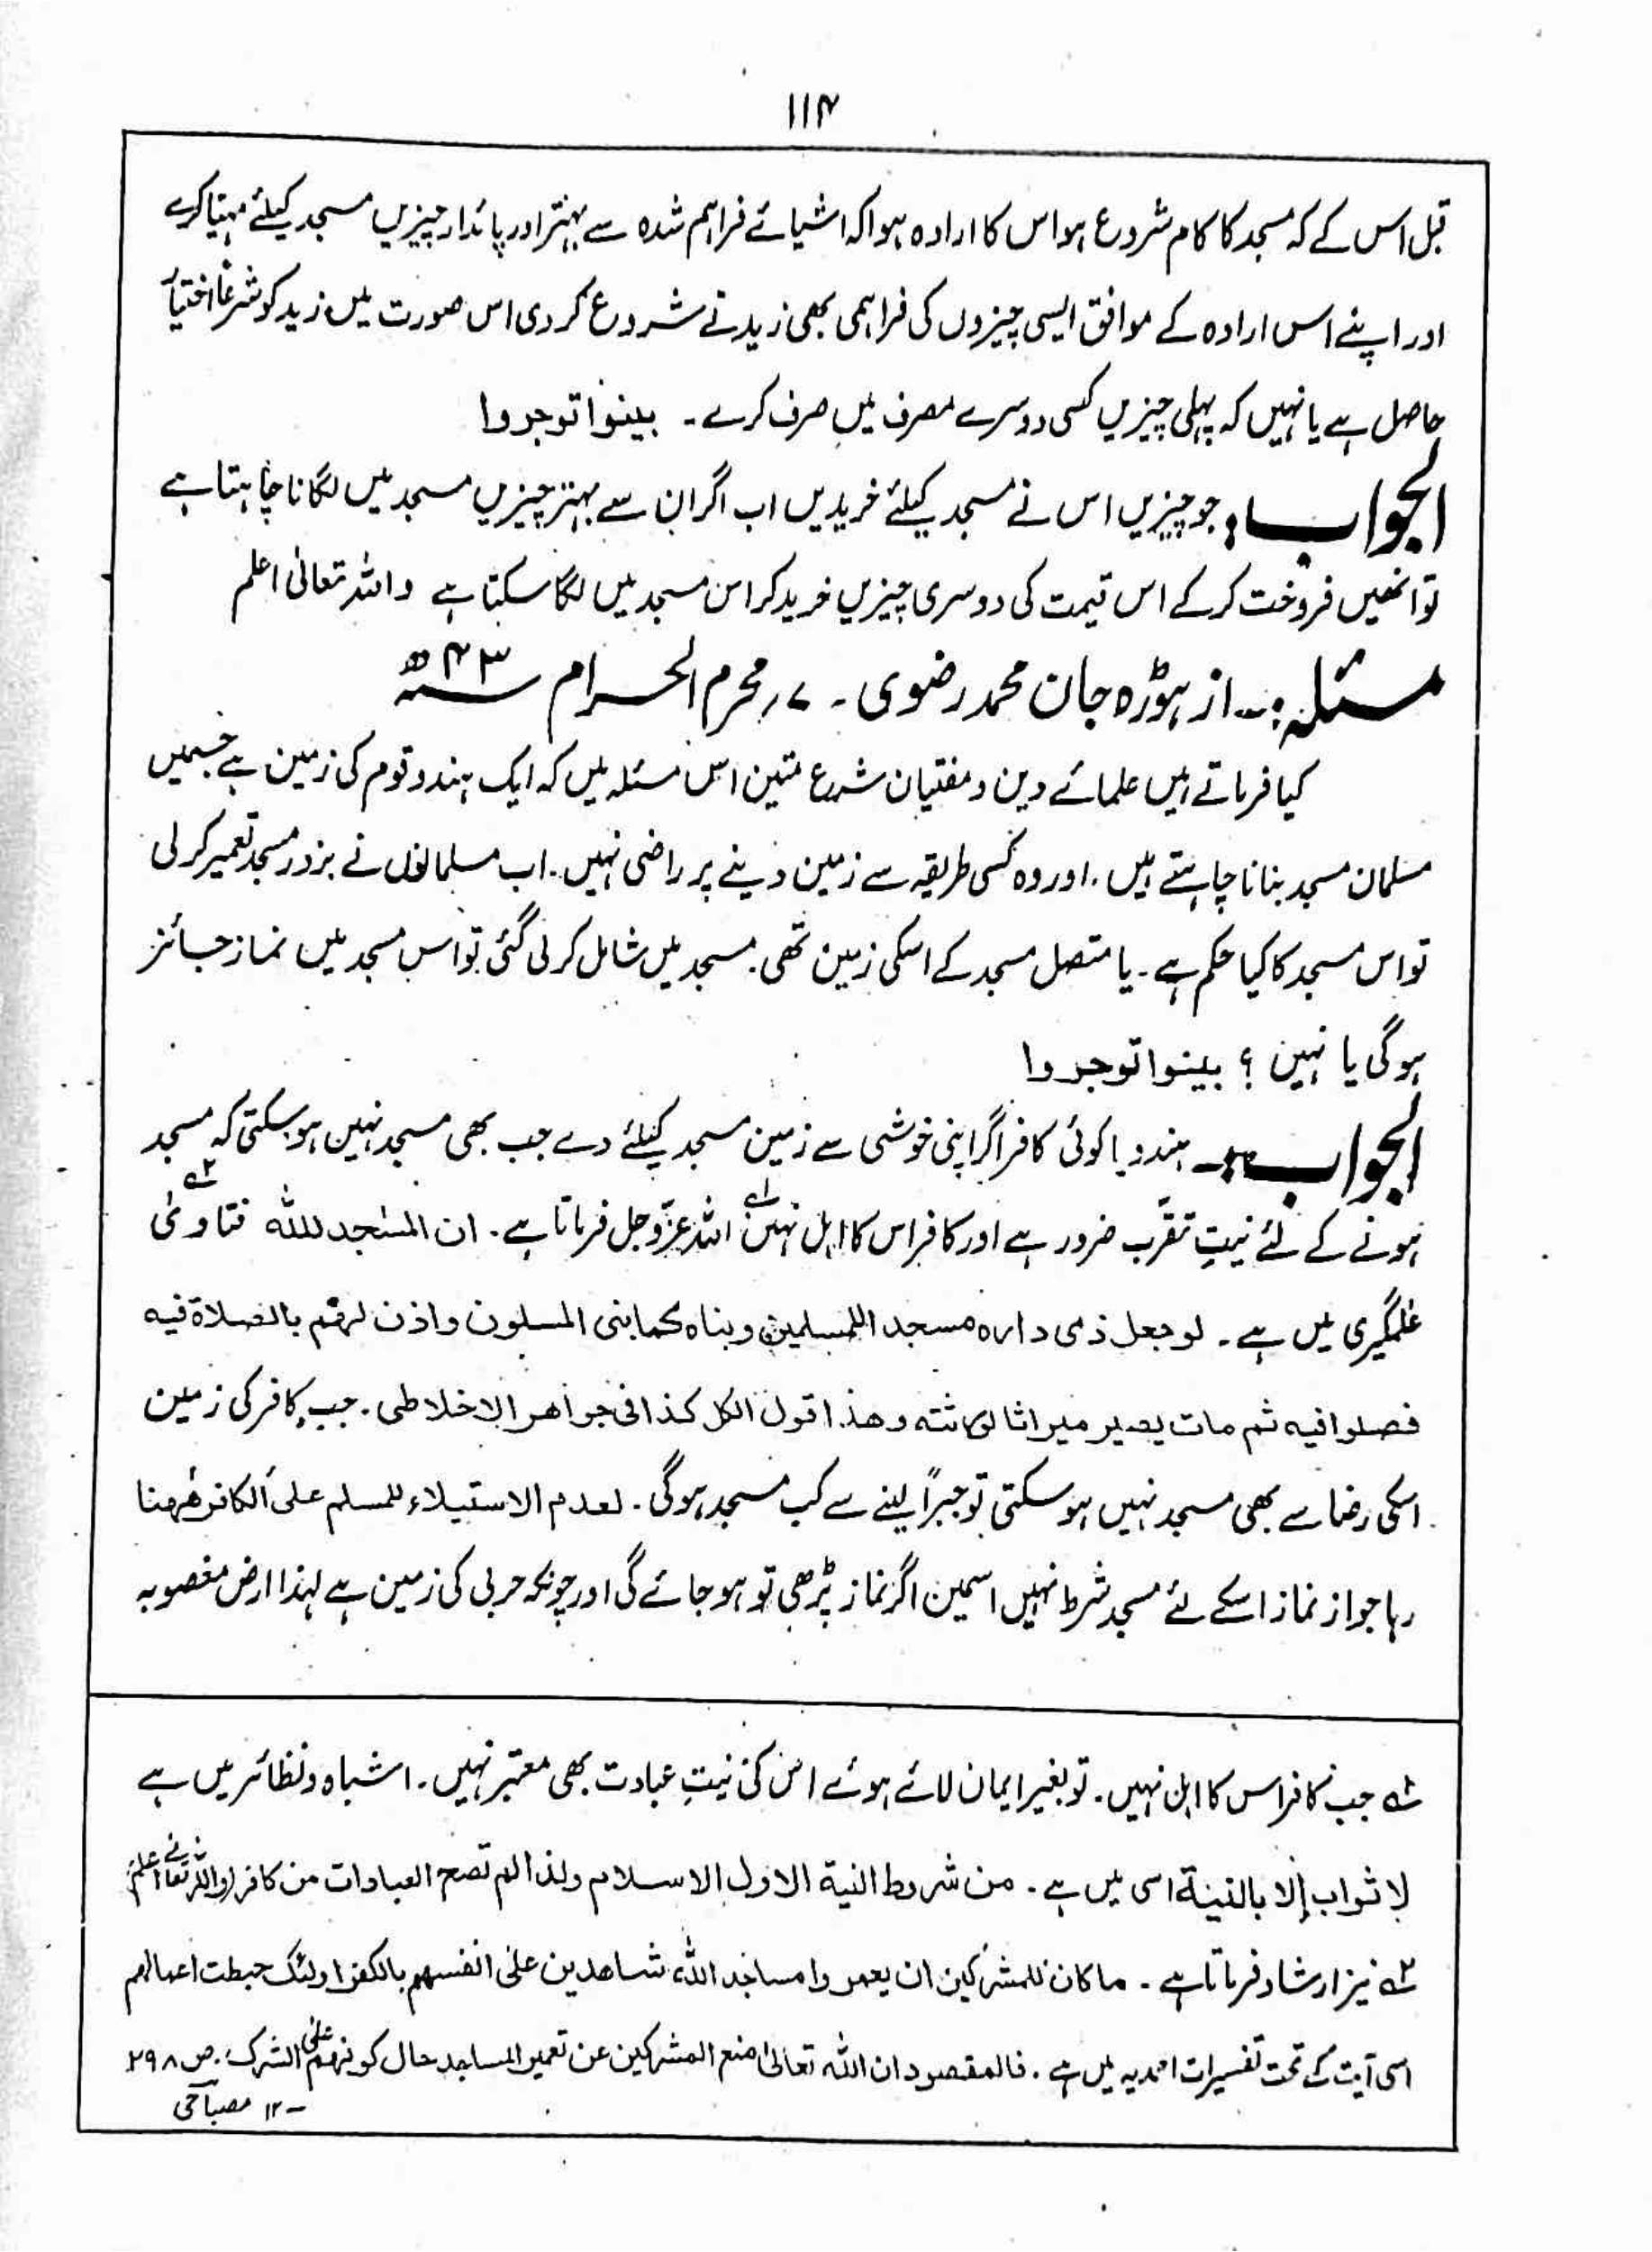 ۱۱۴
قبل اس کے کہ مسجد کا کام شروع ہو اس کا ارادہ ہوا کہ اشیائے فراہم شدہ سے بہتر اور پائدار چیزیں مسجد کیلئے مہیا کرے
اور اپنے اس ارادہ کے موافق ایسی چیزوں کی فراہمی بھی زید نے شروع کر دی اس صورت میں زید کو شرعاً اختیار
حاصل ہے یا نہیں کہ پہلی چیزیں کسی دوسرے مصرف میں صرف کرے۔ بینوا توجروا
الجواب: جو چیزیں اس نے مسجد کیلئے خریدیں اب اگر ان سے بہتر چیزیں مسجد میں لگانا چاہتا ہے
تو انھیں فروخت کر کے اس قیمت کی دوسری چیزیں خرید کر اس مسجد میں لگا سکتا ہے واللہ تعالیٰ اعلم
مسئلہ:۔ از ہوڑہ جان محمد رضوی۔ ۷؍ محرم الحرام ۴۳ھ
کیا فرماتے ہیں علمائے دین و مفتیان شرع متین اس مسئلہ میں کہ ایک ہندو قوم کی زمین ہے جسمیں
مسلمان مسجد بنانا چاہتے ہیں۔ اور وہ کسی طریقہ سے زمین دینے پر راضی نہیں۔ اب مسلمانوں نے بزور مسجد تعمیر کر لی
تو اس مسجد کا کیا حکم ہے۔ یا متصل مسجد کے اسکی زمین تھی۔ مسجد میں شامل کر لی گئی تو اس مسجد میں نماز جائز
ہوگی یا نہیں ؟ بینوا توجروا
الجواب:۔ ہندو یا کوئی کافر اگر اپنی خوشی سے زمین مسجد کیلئے دے جب بھی مسجد نہیں ہو سکتی کہ مسجد
ہونے کے لئے نیتِ تقرّب ضرور ہے اور کافر اس کا اہل نہیں ۱ے اللہ عزّوجل فرماتا ہے۔ ان المسٰجد للہ ۲ے فتاویٰ
عٰلمگیری میں ہے۔ لو جعل ذمی دارہ مسجدا للمسلمین وبناہ کما بنی المسلمون واذن لھم بالصلاۃ فیہ
فصلوا فیہ ثم مات یصیر میراثا لورثتہ وھذا قول الکل کذا فی جواھر الاخلاطی۔ جب کافر کی زمین
اسکی رضا سے بھی مسجد نہیں ہو سکتی تو جبراً لینے سے کب مسجد ہوگی۔ لعدم الاستیلاء للمسلم علی الکافر ھٰھنا
رہا جواز نماز اسکے لئے مسجد شرط نہیں اسمیں اگر نماز پڑھی تو ہو جائے گی اور چونکہ حربی کی زمین ہے لہٰذا ارض مغصوبہ
۱ے جب کافر اس کا اہل نہیں۔ تو بغیر ایمان لائے ہوئے اس کی نیتِ عبادت بھی معتبر نہیں۔ اشباہ و نظائر میں ہے
لا ثواب إلا بالنیۃ اسی میں ہے۔ من شروط النیۃ الاول الاسلام ولذا لم تصح العبادات من کافر واللہ تعالیٰ اعلم
۲ے نیز ارشاد فرماتا ہے۔ ما کان للمشرکین ان یعمروا مساجد اللہ شاھدین علی انفسھم بالکفر اولئک حبطت اعمالھم
اسی آیت کے تحت تفسیرات احمدیہ میں ہے۔ فالمقصود ان اللہ تعالیٰ منع المشرکین عن تعمیر المساجد حال کونھم علی الشرک۔ ص ۲۹۸
۱۲ مصباحی